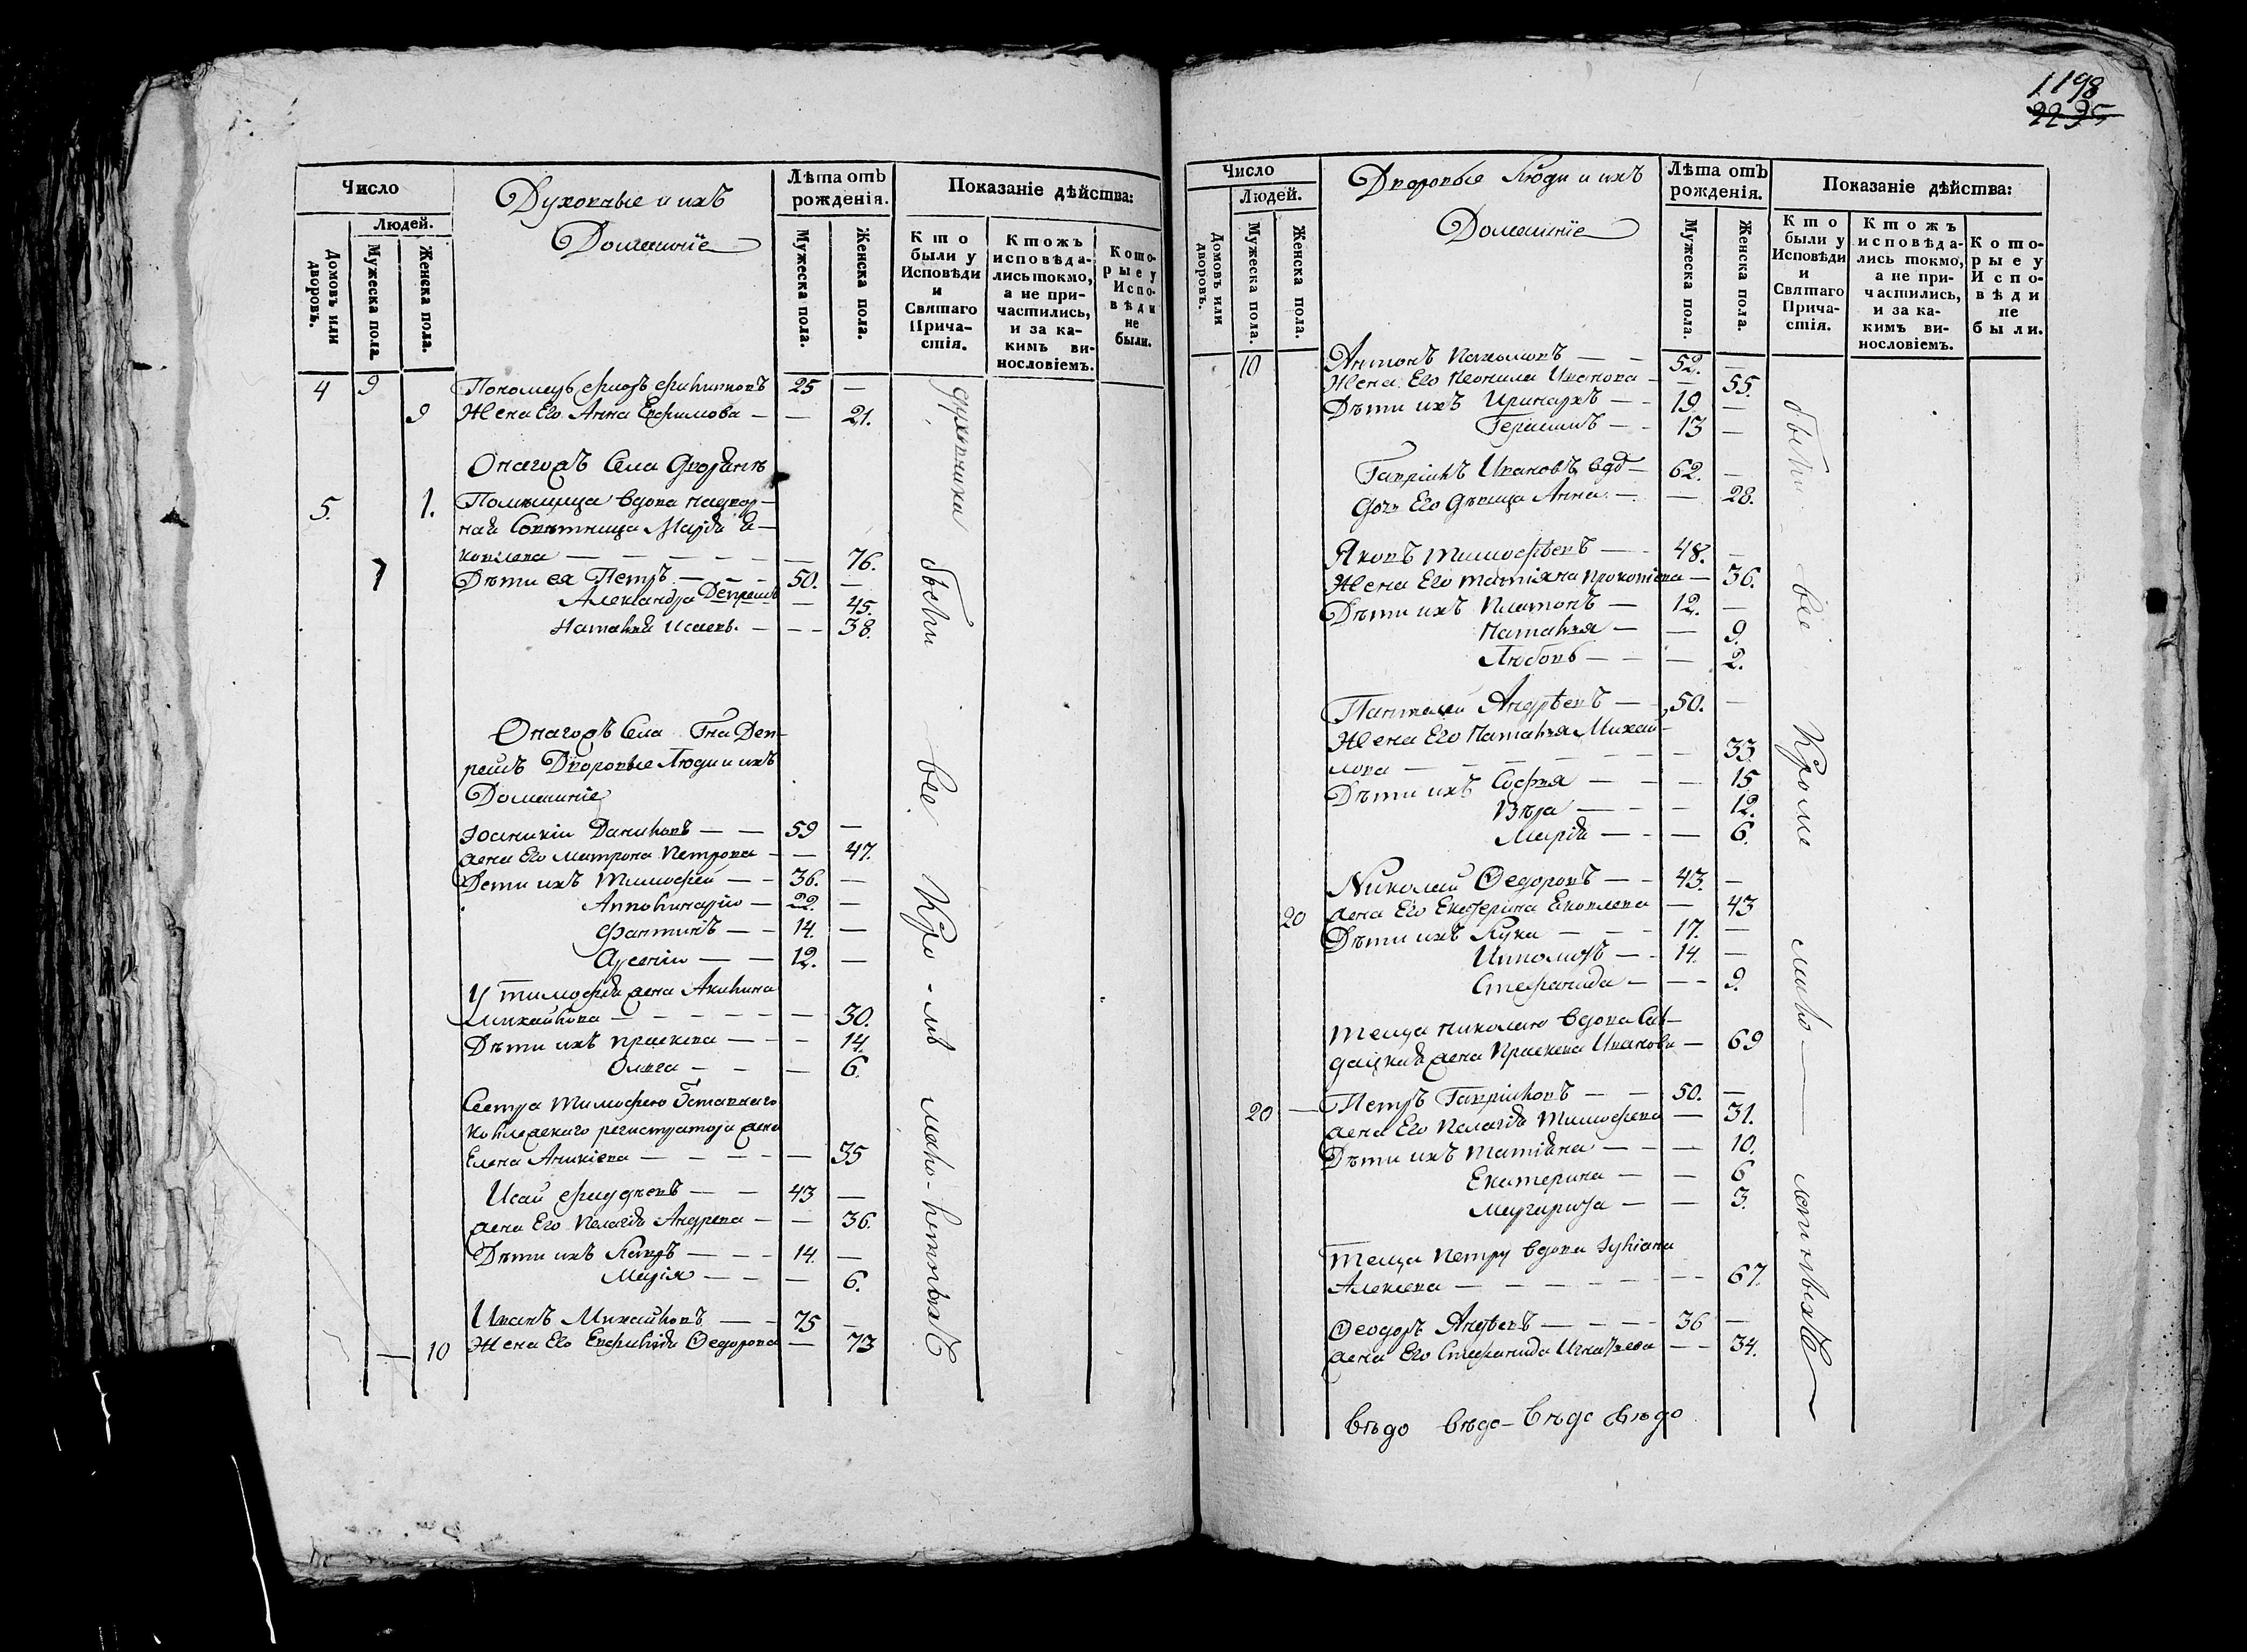 Число
Людей.
Домовъ или дворовъ.
Мужеска пола.
Женска пола.
Духовные и ихъ
Домашніе
Лѣта отъ рожденія.
Мужеска пола.
Женска пола.
Показаніе дѣйства:
Кто были у Исповѣди и Святаго Прича-стія.
Ктожъ исповѣда-лись токмо, а не при-частились, и за ка-кимъ ви-нословіемъ.
Кото-рые у Испо-вѣди не были.
4 9 Пономарь 25 —
9 Жена Его Анна Ефимова — — 21.
Онагожъ Села
5. 1. Помѣщица вдова надвор-
ная Совѣтница Марія Я-
ковлева — — — — — — 76.
1 Дѣти ея Петръ — — 50. —
Александра — 45.
Наталія — — 38.
Онагожъ Села Гна Деп-
рейсъ Дворовые Люди и ихъ
Домашніе
Іоаникіи Даниловъ — — 59 —
жена Его Матрона Петрова — — 47.
Дети ихъ Тимофеи — — 36. —
Апполинарію — 22. —
Фантинъ — — 14. —
Арсеніи — — 12. —
У Тимофѣя жена Акилина
Михайлова — — — — — — 30.
Дѣти ихъ Праскева — — — 14.
Олѣга — — — 6.
Сестра Тимофею Оставнаго
Колежскаго регистратора жена
Елена Аникіева — — — — — 35
Исай — — 43 —
жена Его Пелагія Андрева — — 36.
Дѣти ихъ Лавръ — — — 14. —
Марія — — — 6.
Иванъ Михайловъ — — 75 —
— 10 Жена Его Евфилія Ѳедорова — 73
были все Кро-мѣ мало-летныхъ
1198
2235
Число
Людей.
Домовъ или дворовъ.
Мужеска пола.
Женска пола.
Дворовые Люди и ихъ
Домашніе
Лѣта отъ рожденія.
Мужеска пола.
Женска пола.
Показаніе дѣйства:
Кто были у Исповѣди и Святаго Прича-стія.
Ктожъ исповѣда-лись токмо, а не при-частились, и за ка-кимъ ви-нословіемъ.
Кото-рые у Испо-вѣди не были.
10 Антонъ Пахомовъ — — 52. —
Жена Его Неонила Иванова — — 55.
Дѣти ихъ Иринархъ — — 19. —
Герасимъ — — 13 —
Гавріилъ Ивановъ вдо — 62. —
дочь Его дѣвица Анна — — 28.
Яковъ Тимофѣевъ — — 48. —
Жена Его Татіяна Прокопіева — 36.
Дѣти ихъ Платонъ — 12. —
Наталья — — 9.
Любовь — — — 2.
Пантелей Андрѣевъ — — 50. —
Жена Его Наталья Михай-
лова — — — — — — 33
Дѣти ихъ Софья — — — 15
Вѣра — — — 12.
Марія — — — 6.
Николай Ѳедоровъ — — 43. —
20 жена Его Екатерина Яковлева — 43
Дѣти ихъ Лука — — — 17. —
Ипполитъ — — 14. —
Стефанида — — — 9.
Теща Николаю вдова Сал-
дацкая жена Праскева Иванова — 69
20 — Петръ Гавріиловъ — — 50. —
жена Его Пелагія Тимофева — 31.
Дѣти ихъ Татіяна — — — 10.
Екатерина — — 6
Маргарита — — 3.
Теща Петру вдова Іуліана
Алексева — — — — — — — 67.
Ѳеодоръ Андрѣевъ — — — — 36 —
жена Его Стефанида Игнатьева — — 34.
вѣдо вѣдо — вѣдо вѣдо
были все Кроме мало — лотнѣыхъ